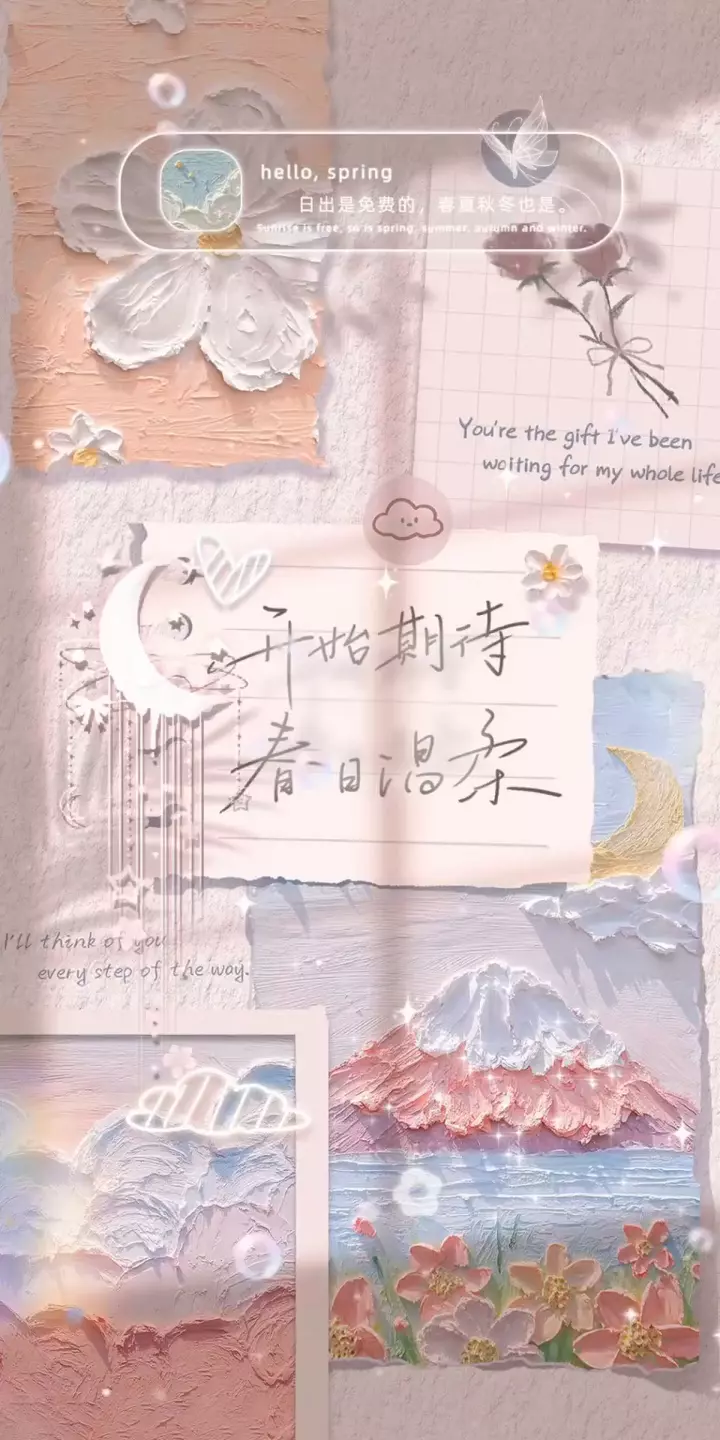 hello, spring
日出是免费的，春夏秋冬也是。
Sunrise is free, so is spring, summer, autumn and winter.
You're the gift I've been
waiting for my whole life
开始期待
春日温柔
I'll think of you
every step of the way.